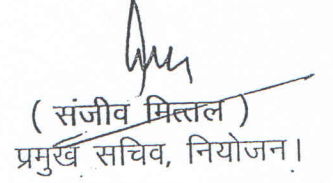 ( संजीव मित्तल )
प्रमुख सचिव, नियोजन।